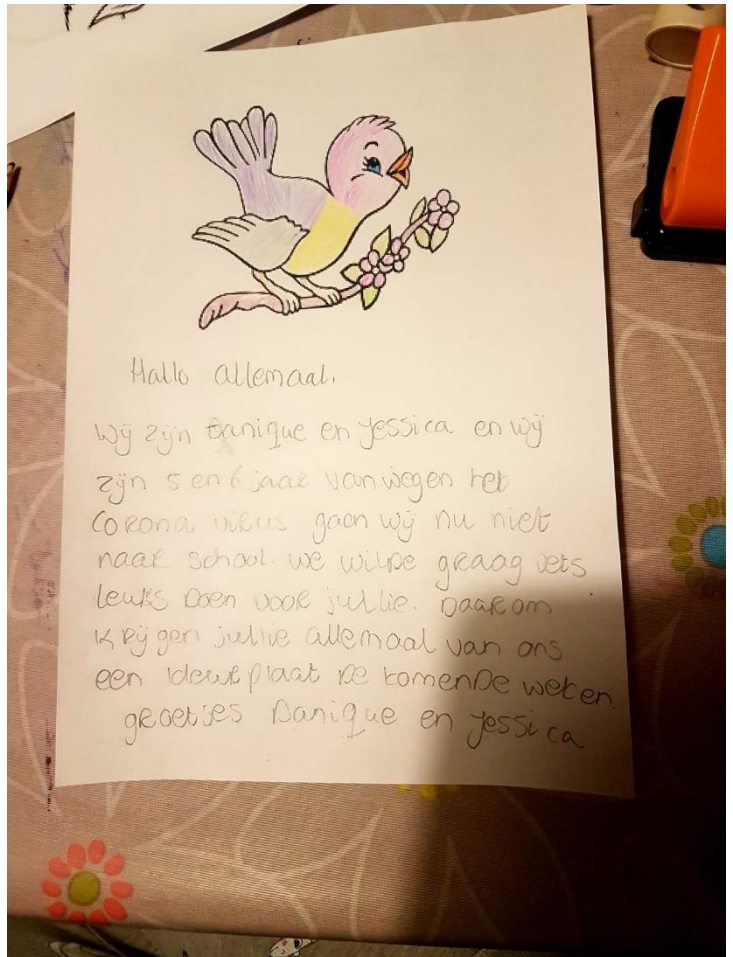 Hallo allemaal.
Wij zijn Danique en Jessica en wij
zijn 5 en 6 jaar vanwegen het
Corona virus gaan wij nu niet
naar school. We wilde graag iets
leuks doen voor jullie. Daarom
krijgen jullie allemaal van ons
een kleurplaat de komende weken.
groetjes Danique en Jessica